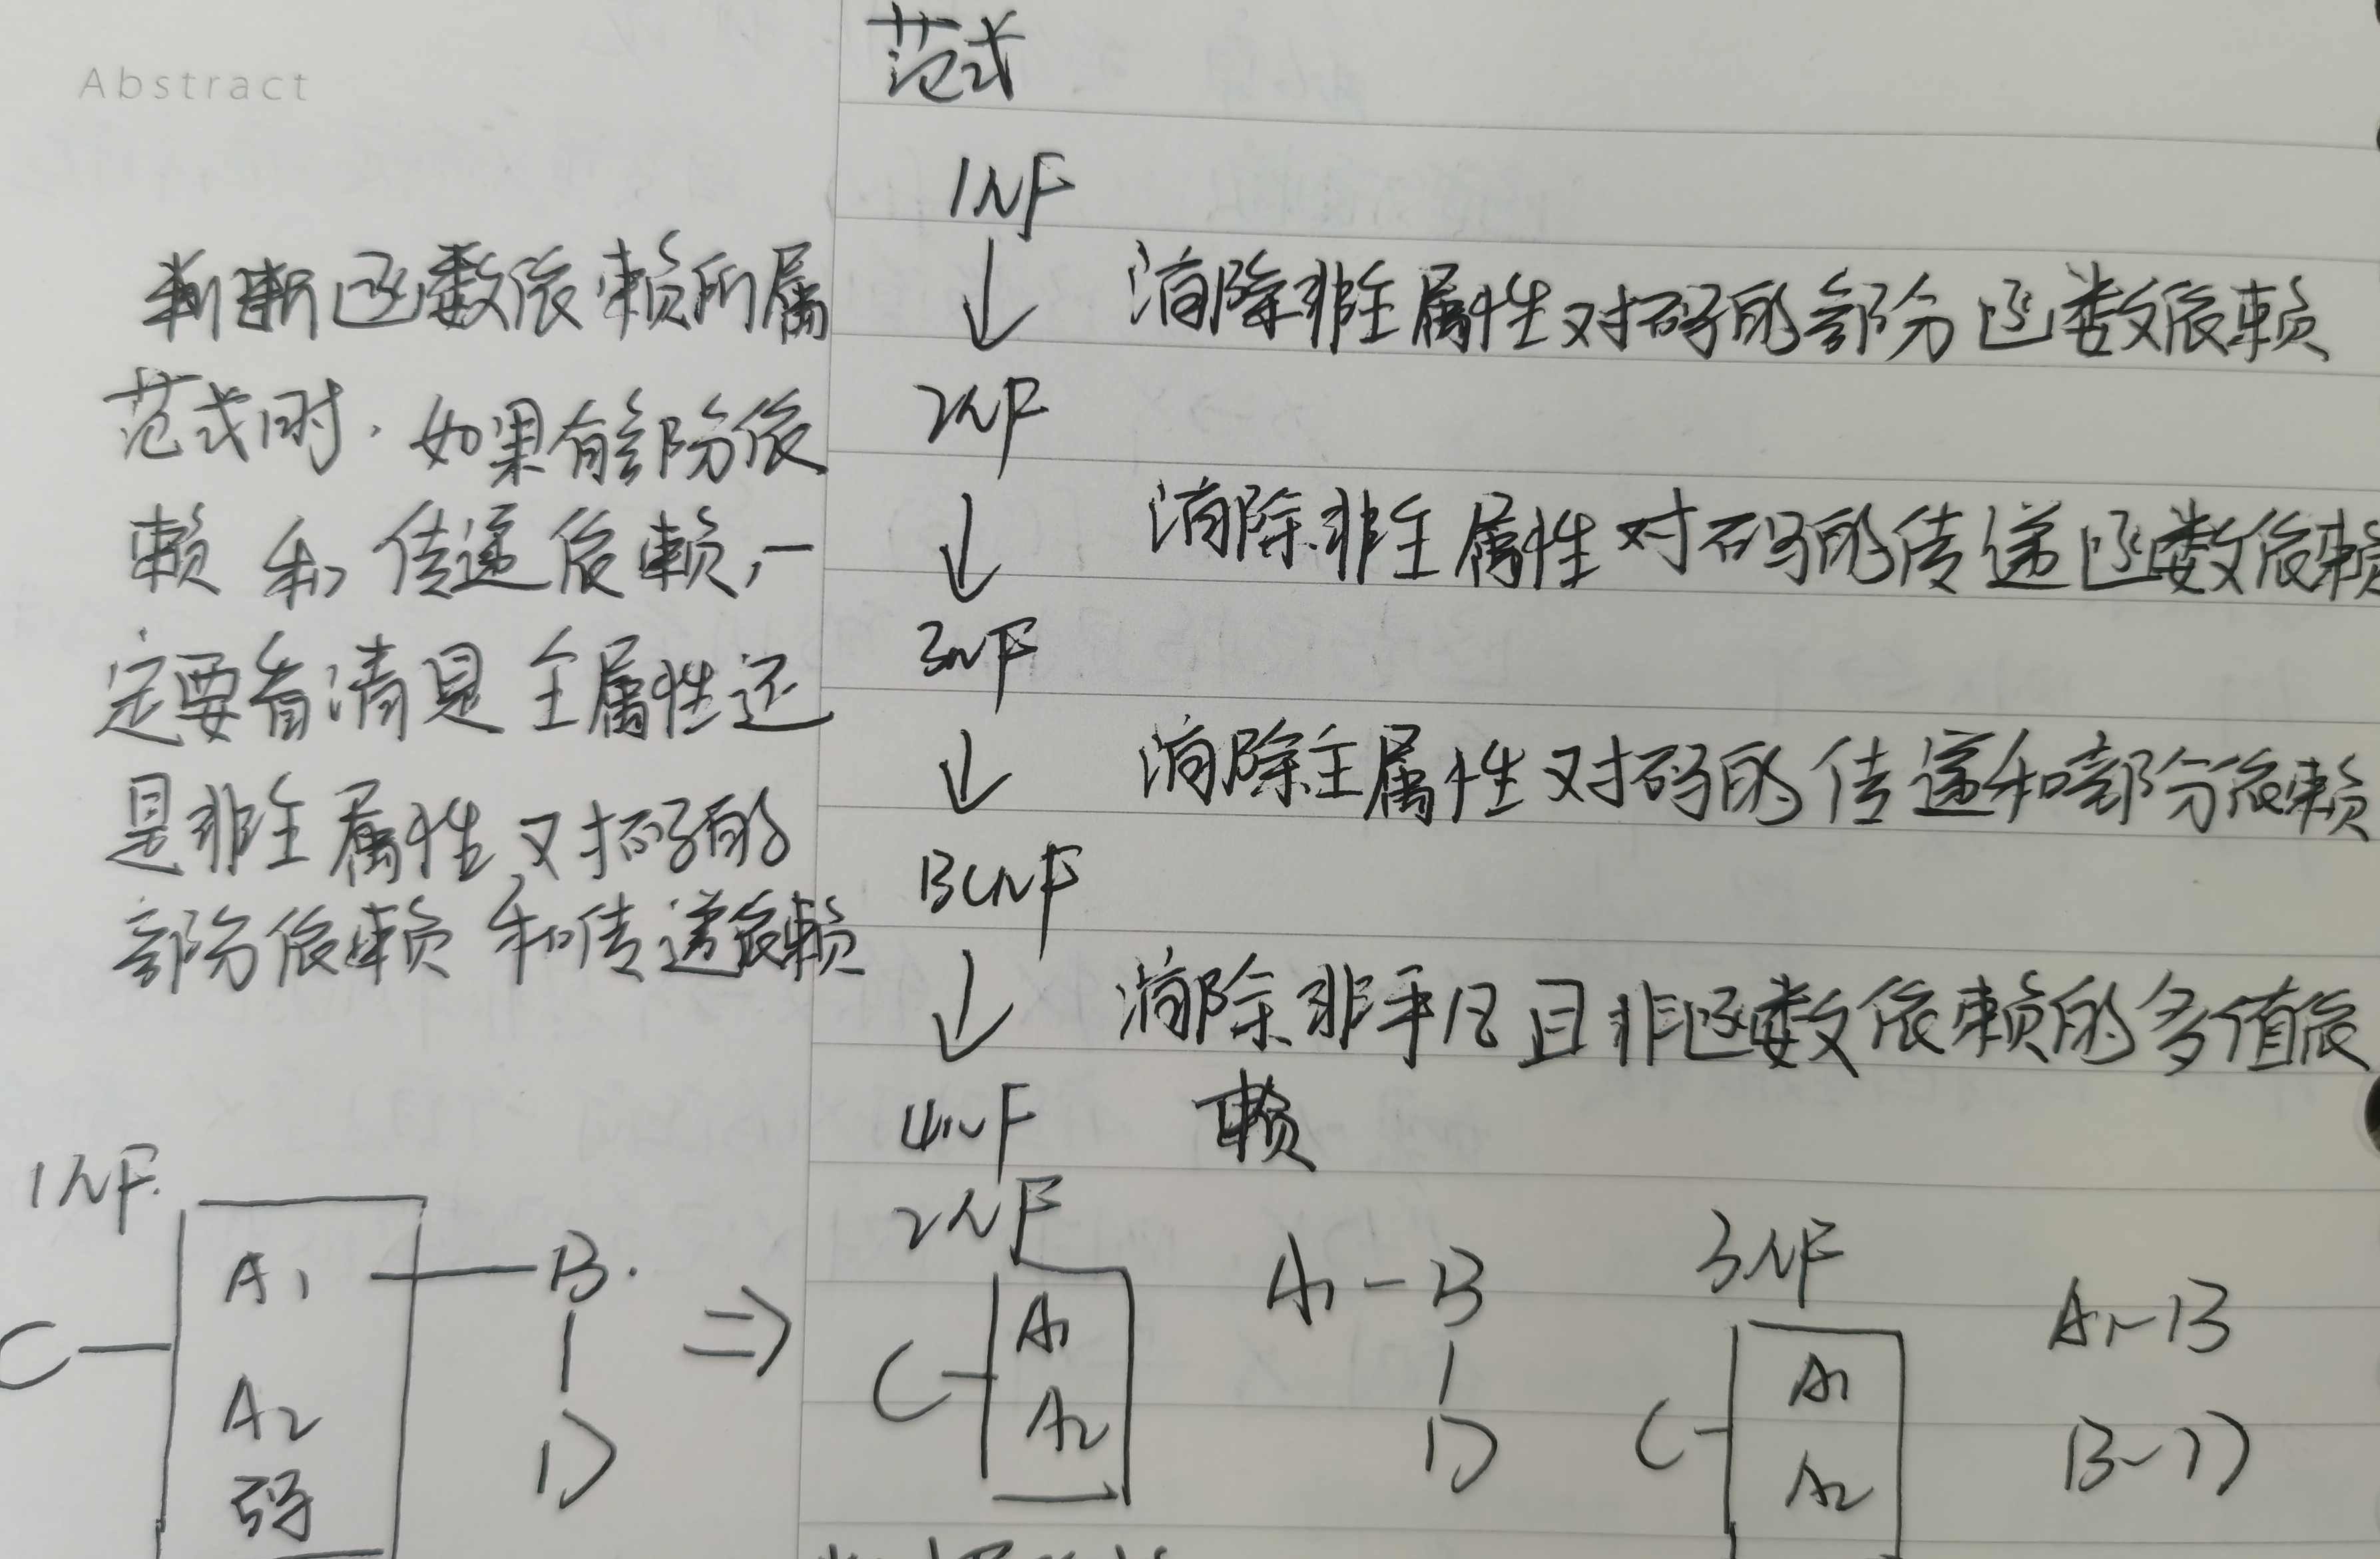 Abstract
判断函数依赖所属
范式时,如果有部分依
赖和传递依赖,一
定要看清是主属性还
是非主属性对码的
部分依赖和传递依赖
范式
1NF
↓ 消除非主属性对码的部分函数依赖
2NF
↓ 消除非主属性对码的传递函数依赖
3NF
↓ 消除主属性对码的传递和部分依赖
BCNF
↓ 消除非平凡且非函数依赖的多值依
4NF 赖
1NF.
A1 — B.
C —
A2 D
码
⇒
2NF
A1 A1 - B
C —
A2 D
3NF
A1 A1 - B
C -
A2 B - D